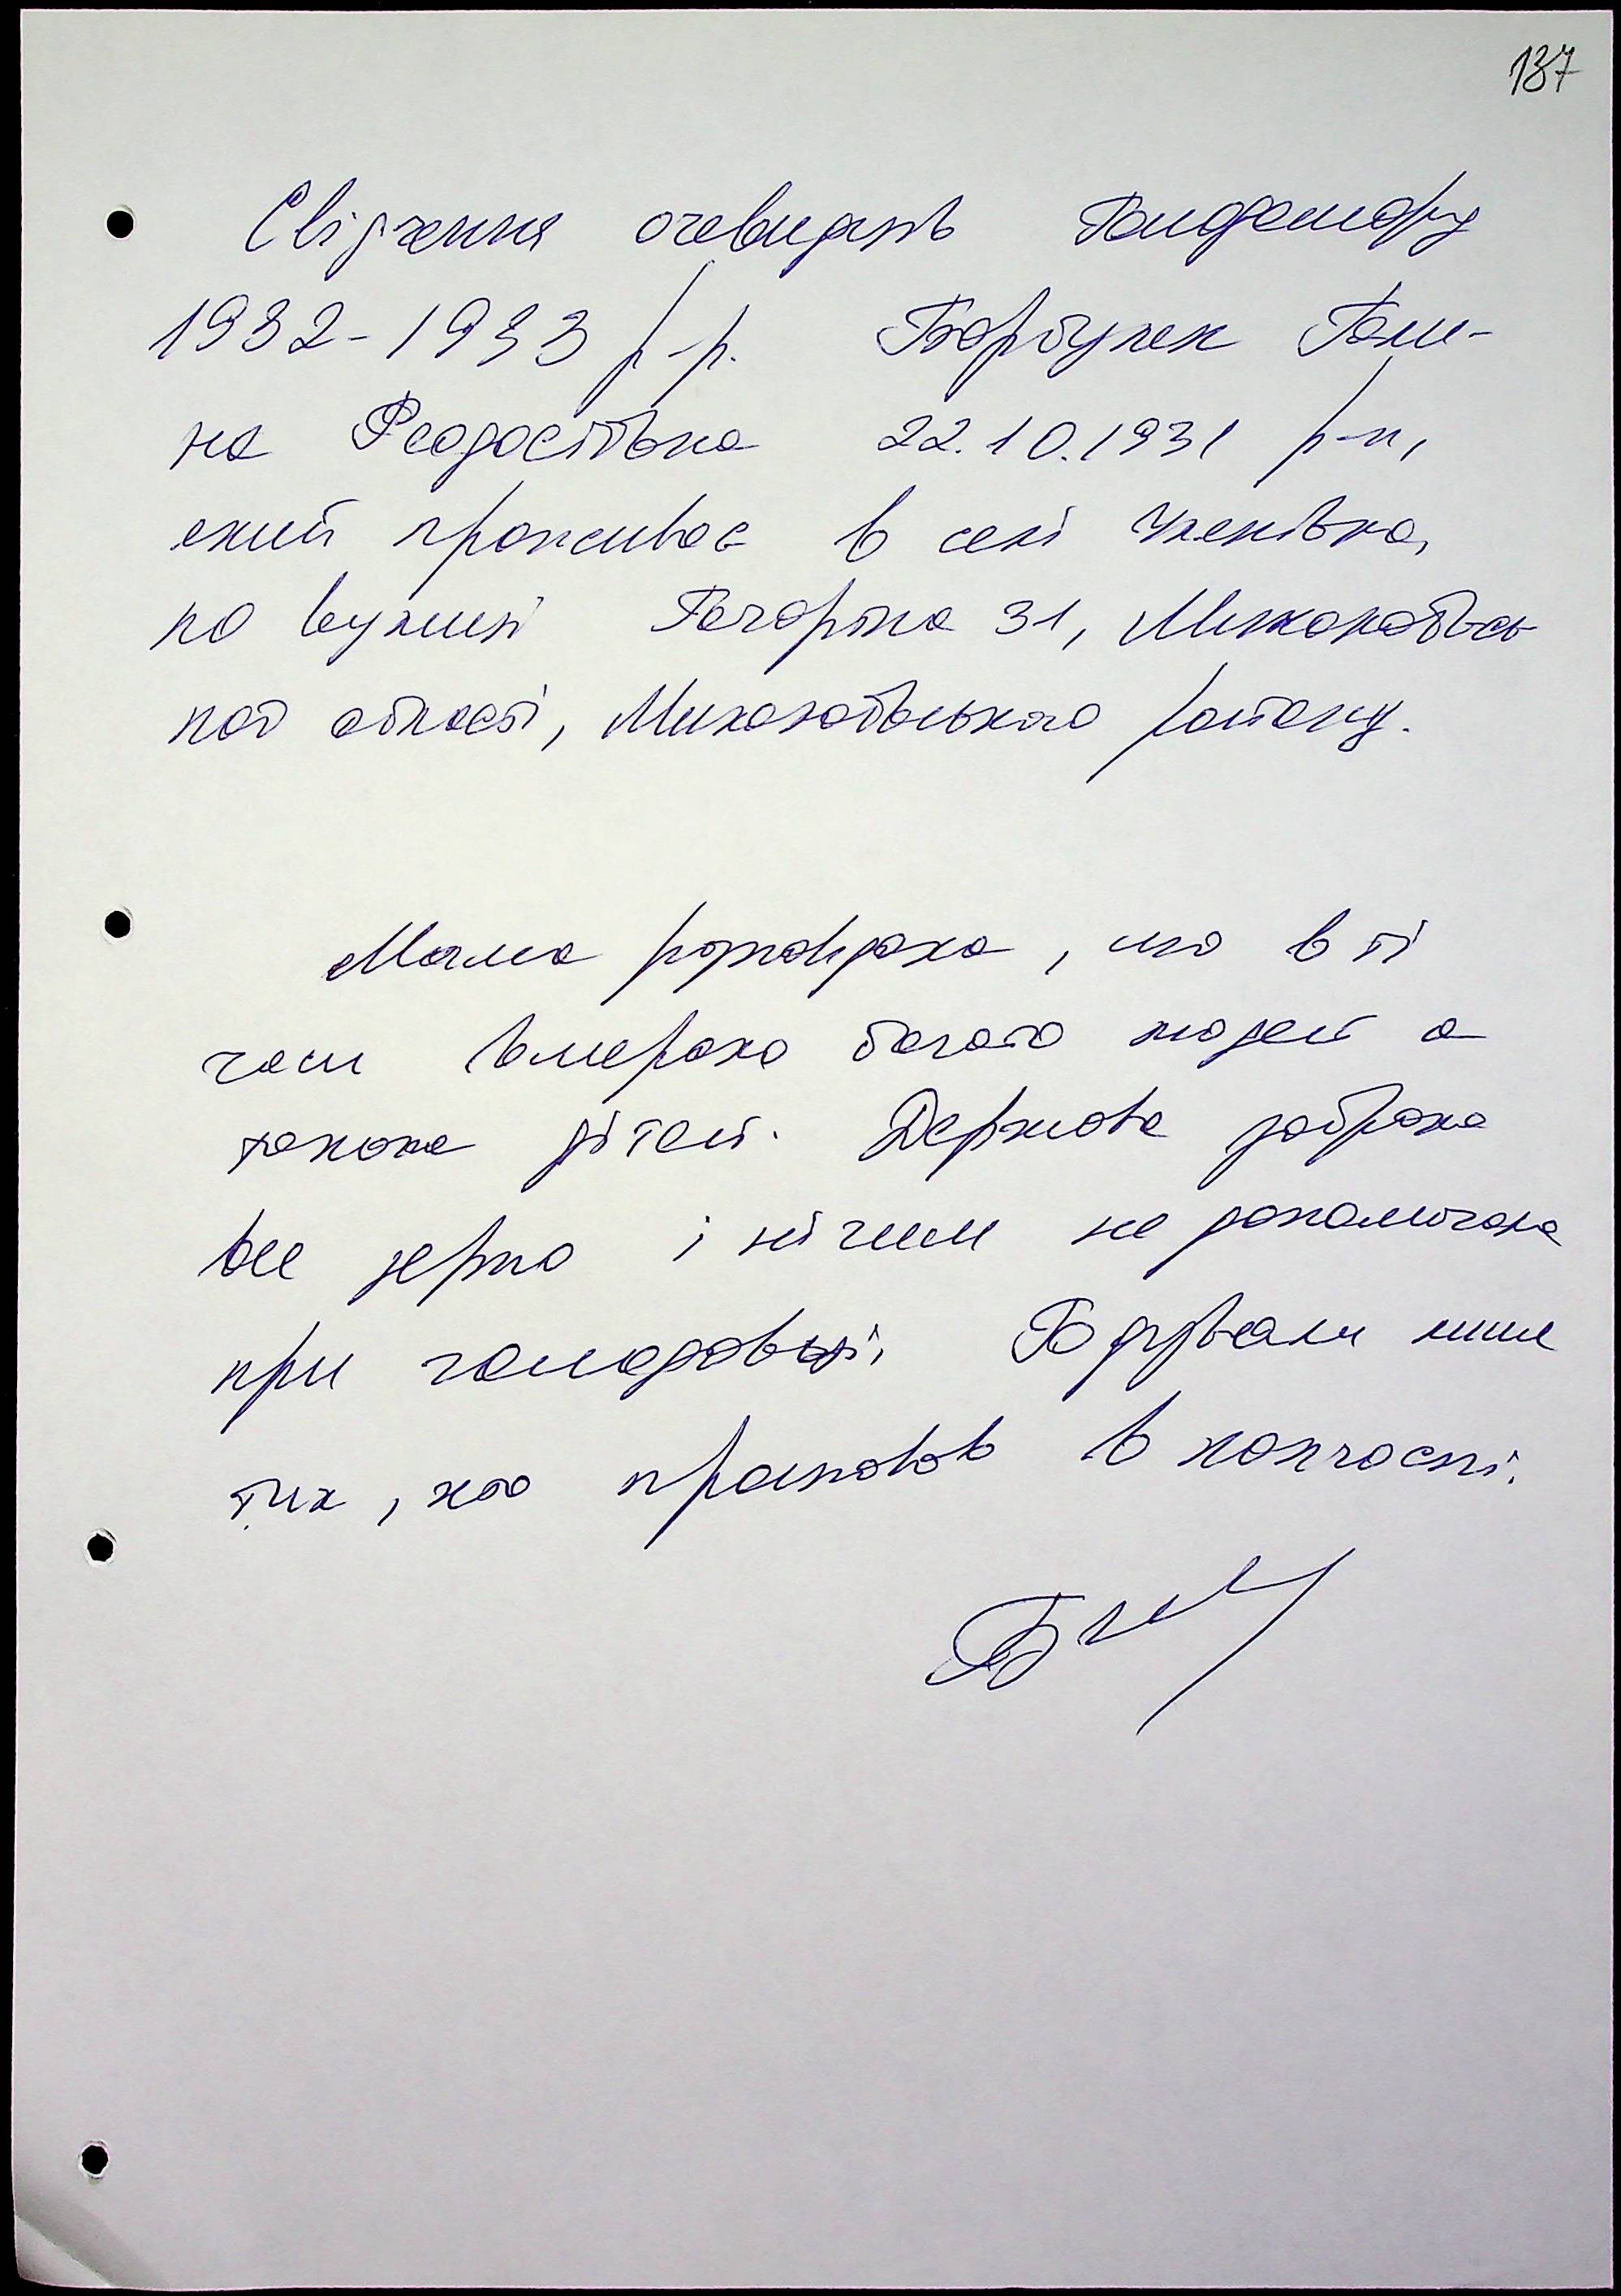 137
Свідчення очевидців Голодомору
1932-1933 р-р. Барбулек Гали-
на Феодосіївна 22.10.1931 р-н,
який проживає в селі Українівка,
по вулиці Гагаріна 31, Миколаївсь
кої області, Миколаївського району.
Мама розповідала, що в ті
часи вмерало багато людей а
також дітей. Держава забрала
все зерно і нічим не допомогала
при голодовці. Годували лише
тих, хто працював в колгоспі.